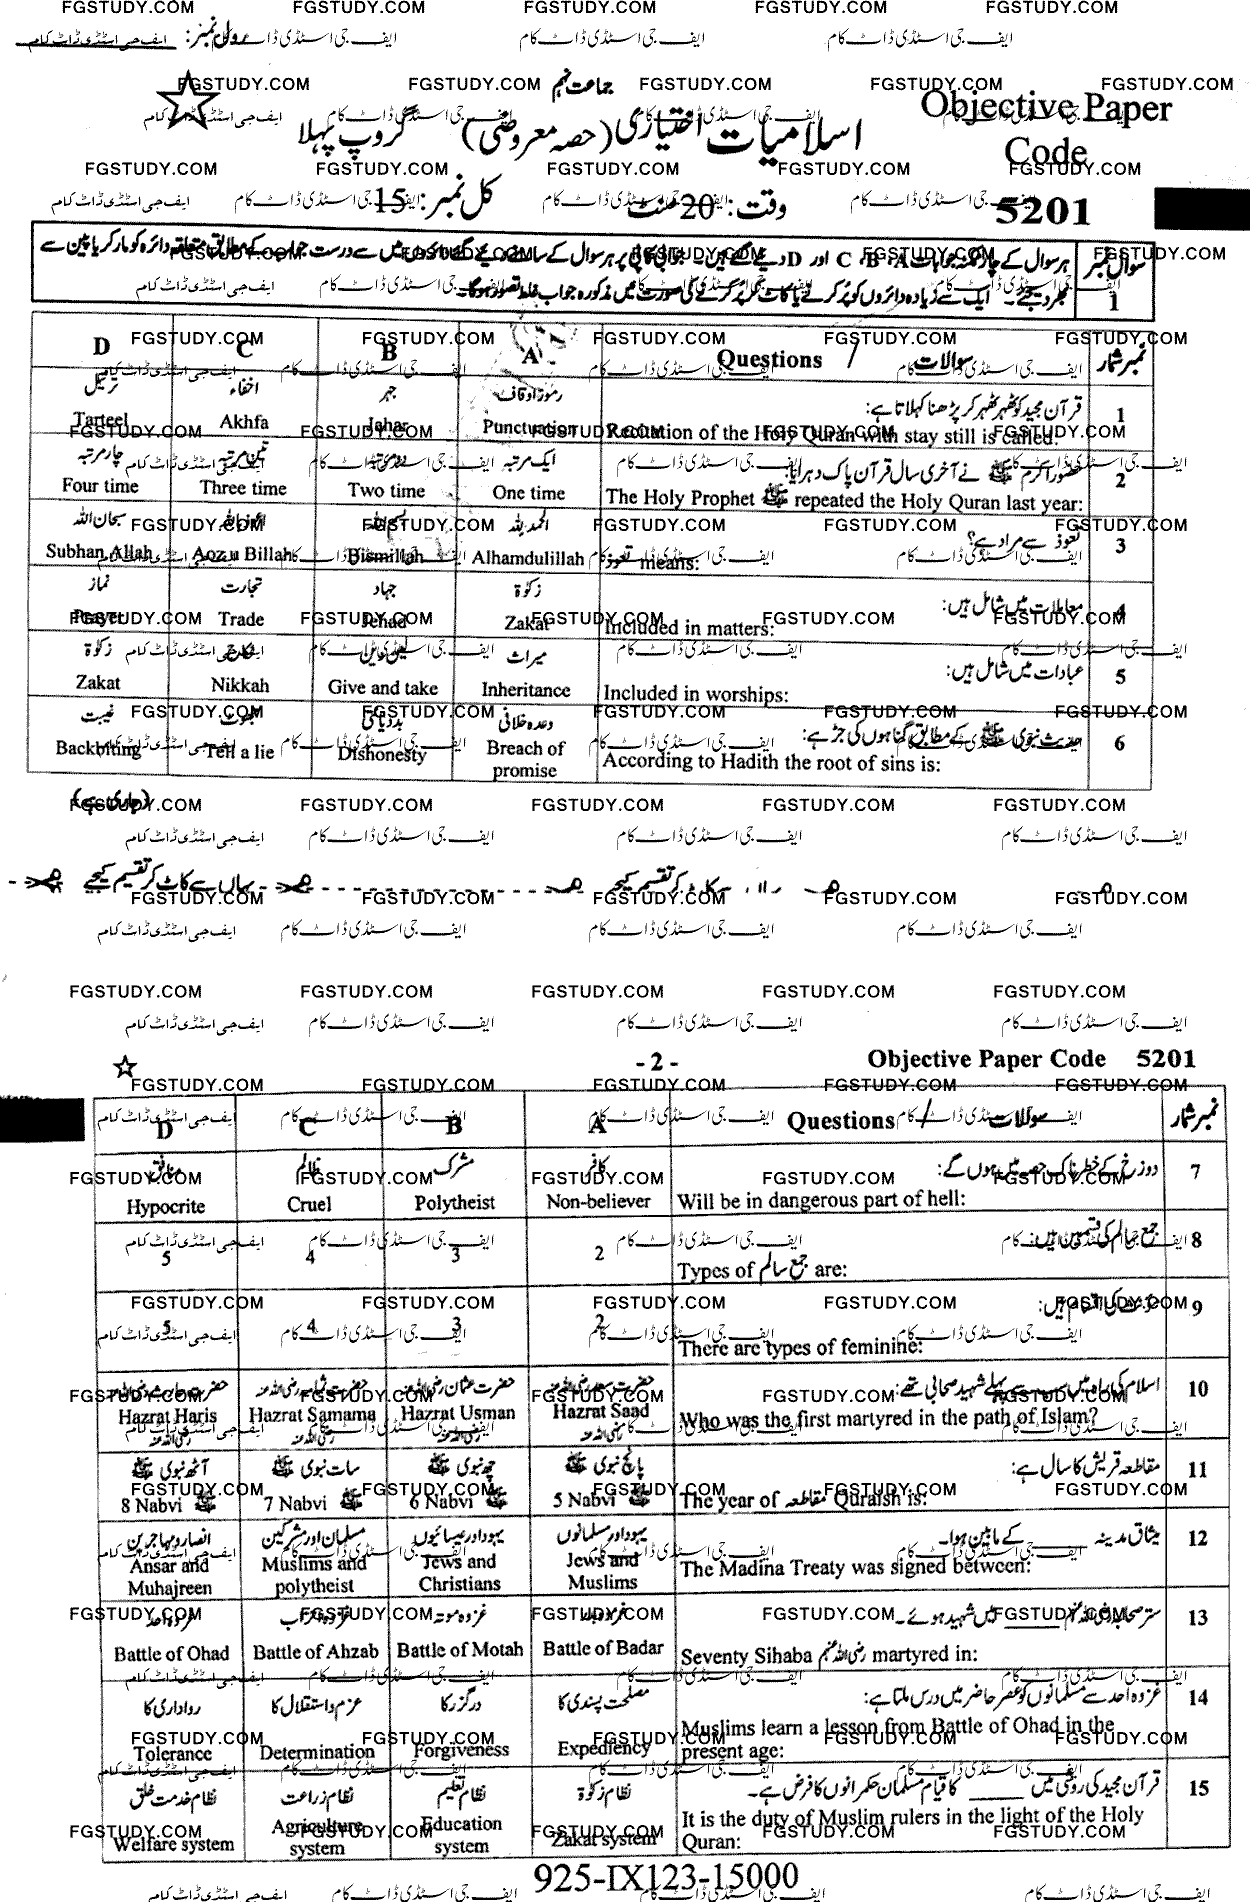 رول نمبر:
جماعت نہم
Objective Paper
Code
5201
اسلامیات اختیاری (حصہ معروضی) گروپ پہلا
وقت: 20 منٹ کل نمبر: 15
سوال نمبر 1
ہر سوال کے چار ممکنہ جوابات A، B، C اور D دیے گئے ہیں۔ جوابی کاپی پر ہر سوال کے سامنے دیے گئے دائروں میں سے درست جواب کے مطابق متعلقہ دائرہ کو مارکر یا پین سے
بھر دیجئے۔ ایک سے زیادہ دائروں کو پُر کرنے یا کاٹ کر پُر کرنے کی صورت میں مذکورہ جواب غلط تصور ہوگا۔
نمبر شمار Questions / سوالات A B C D
1 قرآن مجید کو ٹھہر ٹھہر کر پڑھنا کہلاتا ہے: رموز اوقاف جہر اخفاء ترتیل
Recitation of the Holy Quran with stay still is called: Punctuation Jahar Akhfa Tarteel
2 حضور اکرم ﷺ نے آخری سال قرآن پاک دہرایا: ایک مرتبہ دو مرتبہ تین مرتبہ چار مرتبہ
The Holy Prophet ﷺ repeated the Holy Quran last year: One time Two time Three time Four time
3 تعوذ سے مراد ہے؟ الحمدللہ بسم اللہ اعوذ باللہ سبحان اللہ
تعوذ means: Alhamdulillah Bismillah Aozu Billah Subhan Allah
4 معاملات میں شامل ہیں: زکوٰۃ جہاد تجارت نماز
Included in matters: Zakat Jehad Trade Prayer
5 عبادات میں شامل ہیں: میراث لین دین نکاح زکوٰۃ
Included in worships: Inheritance Give and take Nikkah Zakat
6 حدیث نبوی ﷺ کے مطابق گناہوں کی جڑ ہے: وعدہ خلافی بددیانتی جھوٹ غیبت
According to Hadith the root of sins is: Breach of promise Dishonesty Tell a lie Backbiting
(جاری ہے)
یہاں سے کاٹ کر تقسیم کیجیے کاٹ کر تقسیم کیجیے
- 2 - Objective Paper Code 5201
نمبر شمار Questions / سوالات A B C D
7 دوزخ کے خطرناک حصہ میں ہوں گے: کافر مشرک ظالم منافق
Will be in dangerous part of hell: Non-believer Polytheist Cruel Hypocrite
8 جمع سالم کی قسمیں ہیں:
Types of جمع سالم are: 2 3 4 5
9 مؤنث کی اقسام ہیں:
There are types of feminine: 2 3 4 5
10 اسلام کی راہ میں سب سے پہلے شہید صحابی تھے: حضرت سعد رضی اللہ عنہ حضرت عثمان رضی اللہ عنہ حضرت ثمامہ رضی اللہ عنہ حضرت حارث رضی اللہ عنہ
Who was the first martyred in the path of Islam? Hazrat Saad رضی اللہ عنہ Hazrat Usman رضی اللہ عنہ Hazrat Samama رضی اللہ عنہ Hazrat Haris رضی اللہ عنہ
11 مقاطعہ قریش کا سال ہے: پانچ نبوی ﷺ چھ نبوی ﷺ سات نبوی ﷺ آٹھ نبوی ﷺ
The year of مقاطعہ Quraish is: 5 Nabvi ﷺ 6 Nabvi ﷺ 7 Nabvi ﷺ 8 Nabvi ﷺ
12 میثاق مدینہ ______ کے مابین ہوا۔ یہود اور مسلمانوں یہود اور عیسائیوں مسلمان اور مشرکین انصار و مہاجرین
The Madina Treaty was signed between: Jews and Muslims Jews and Christians Muslims and polytheist Ansar and Muhajreen
13 ستر صحابہ رضی اللہ عنہم ______ میں شہید ہوئے۔ غزوہ بدر غزوہ موتہ غزوہ احزاب غزوہ احد
Seventy Sihaba رضی اللہ عنہم martyred in: Battle of Badar Battle of Motah Battle of Ahzab Battle of Ohad
14 غزوہ احد سے مسلمانوں کو عصر حاضر میں درس ملتا ہے: مصلحت پسندی کا درگزر کا عزم و استقلال کا رواداری کا
Muslims learn a lesson from Battle of Ohad in the present age: Expediency Forgiveness Determination Tolerance
15 قرآن مجید کی روشنی میں ______ کا قیام مسلمان حکمرانوں کا فرض ہے۔ نظام زکوٰۃ نظام تعلیم نظام زراعت نظام خدمت خلق
It is the duty of Muslim rulers in the light of the Holy Quran: Zakat system Education system Agriculture system Welfare system
925-IX123-15000
FGSTUDY.COM
ایف جی اسٹڈی ڈاٹ کام